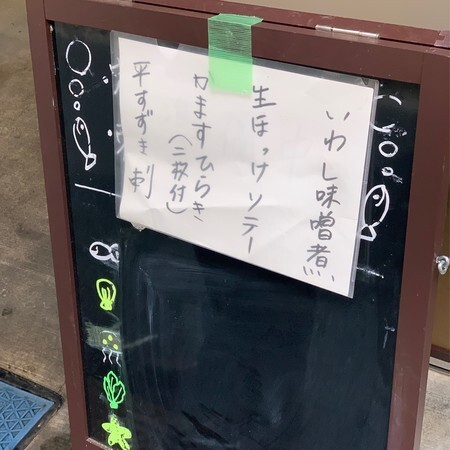 いわし味噌煮
生ほっけソテー
かますひらき
(二枚付)
平すずき刺